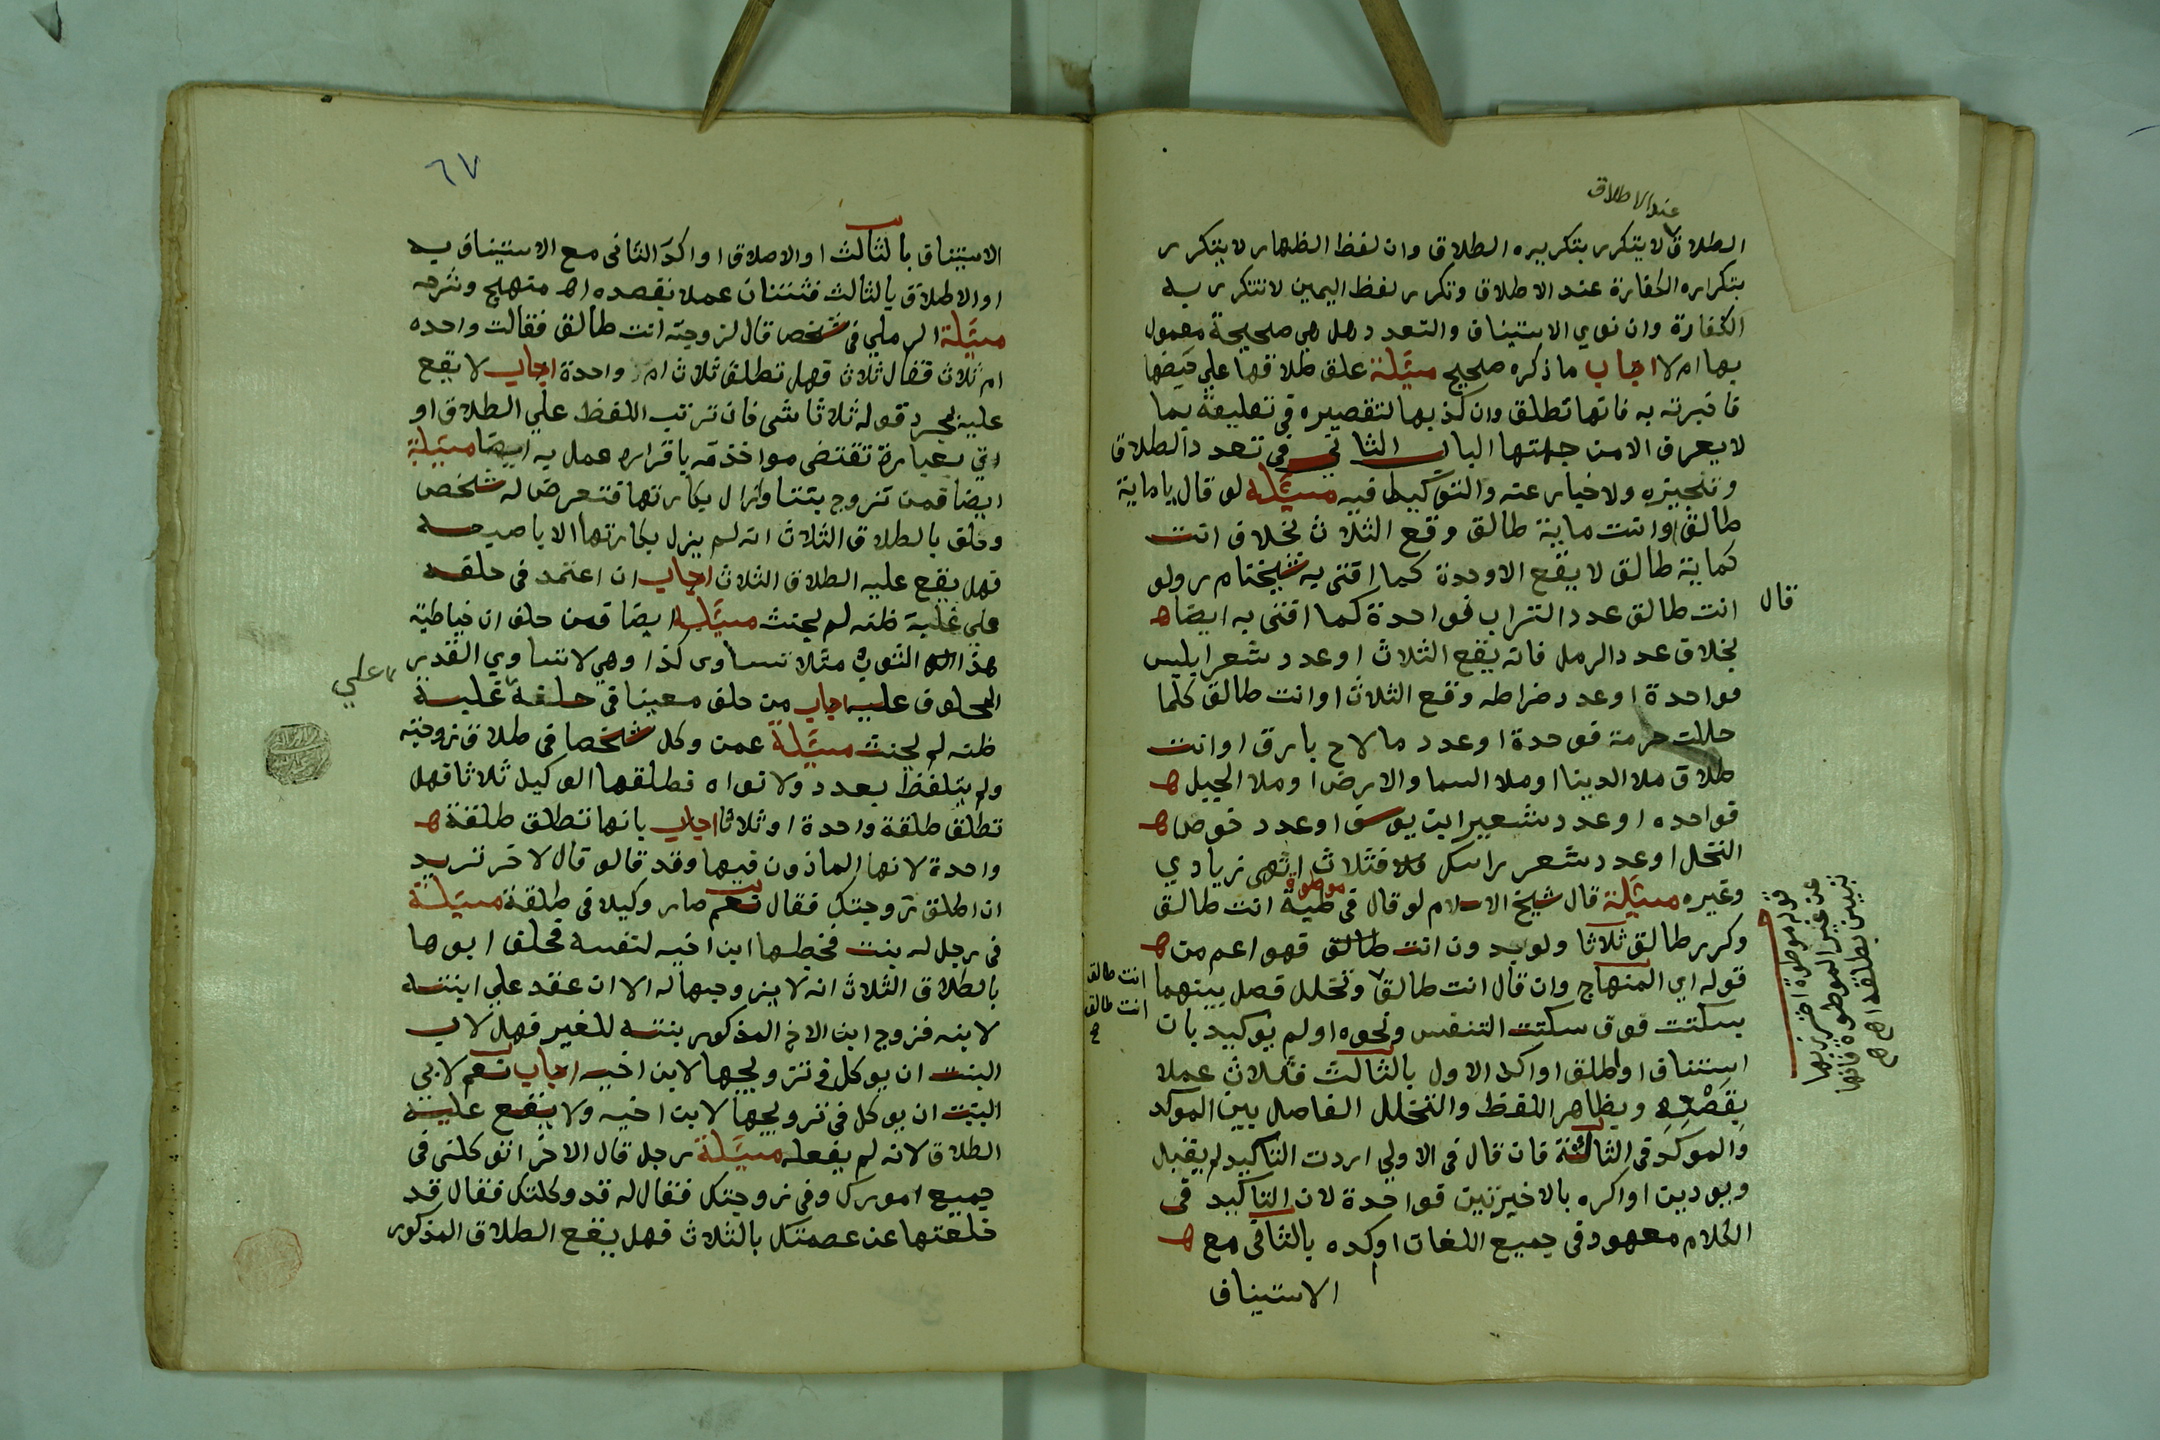 عند الاطلاق
الطلاق لا يتكرر بتكريره الطلاق وان لفظ الظهار لا يتكرر
بتكراره الكفارة عند الاطلاق وتكرر لفظ اليمين لا تتكرر به
الكفارة وان نوي الاستيناف والتعدد هل هي صحيحة معمول
بها ام لا اجاب ما ذكره صحيح مسئلة علق طلاقها علي حيضها
فاخبرته به فانها تطلق وان كذبها لتقصيره في تعليقه بما
لا يعرف الا من جهتها الباب الثاني في تعدد الطلاق
وتنجيزه ولاخيار عنه والتوكيد فيه مسئلة لو قال يا ماية
طالق او انت ماية طالق وقع الثلاث بخلاف انت
كماية طالق لا يقع الا وحدة كما افتي به شيخنا م ر ولو
قال
انت طالق عدد التراب فواحدة كما افتي به ايضا
بخلاف عدد الرمل فانه يقع الثلاث او عدد شعر ابليس
فواحدة او عدد ضراطه وقع الثلاث او انت طالق كلما
حللت حرمة فوحدة او عدد ما لاح بارق او انت
طلاق ملا الدينا او ملا السما والارض او ملا الجبل
فواحده او عدد شعير ابن يوسف او عدد خوص
النخل او عدد شعر راسك فثلاث انتهى زيادي
وغيره مسئلة قال شيخ الاسلام لو قال في موطوة انت طالق
وكرر طالق ثلاثا ولو بدون انت طالق فهو اعم من
قوله اي المنهاج وان قال انت طالق وتخلل فصل بينهما
انت طالق
انت طالق
بسكتت فوق سكتت التنفس ونحوه او لم يوكيد بان
استئناف او اطلق او اكد الاول بالثالث فثلاث عملا
بقصده وبظاهر اللفظ والتخلل الفاصل بين الموكد
والموكد في الثالثة فان قال في الاولي اردت التاكيد لم يقبل
وبودين او اكره بالاخيرتين فواحدة لان التاكيد في
الكلام معهود في جميع اللغات او كده بالثاني مع
الاستيناف
قوله موطوة احترز بها
عن غير الموطوة فانها
تبين بطلقة اه
٦٧
الاستيناف بالثالث او الاطلاق او اكد الثاني مع الاستيناف به
او الاطلاق بالثالث فثنتان عملا بقصده اه متهج وشرحه
مسئلة الرملي في شخص قال لزوجته انت طالق فقالت واحده
ام ثلاث فقال ثلاث فهل تطلق ثلاث ام واحدة اجاب لا يقع
عليه بمجرد قوله ثلاثا شي فان ترتب اللفظ علي الطلاق او
اتي بعبارة تقتضي مواخذته باقراره عمل به ايضا مسئلة
ايضا فمن تزوج بنتا وازال بكارتها فتعرض له شخص
وحلف بالطلاق الثلاث انه لم يزل بكارتها الا باصبعه
فهل يقع عليه الطلاق الثلاث اجاب ان اعتمد في حلفه
علي غلبة ظنه لم يحنث مسئلة ايضا فمن حلف ان خياطية
هذا الثوب مثلا تساوى كذا وهي لا تساوي القدر
المحلوف عليه اجاب من حلف معينا في حلفه غلبة
علي
ظنه لم يحنث مسئلة عمن وكل شخصا في طلاق زوجته
ولم يتلفظ بعدد ولا نواه فطلقها الوكيل ثلاثا فهل
تطلق طلقة واحدة او ثلاثا اجاب بانها تطلق طلقة
واحدة لانها الماذون فيها وقد قالو قال لاخر تريد
ان اطلق زوجتك فقال نعم صار وكيلا في طلقة مسئلة
في رجل له بنت فخطبها ابن اخيه لنفسه فحلف ابوها
بالطلاق الثلاث انه لا يزوجها له الا ان عقد علي ابنته
لابنه فزوج ابن الاخ المذكور بنته للغير فهل لاب
البنت ان يوكل في تزويجها لابن اخيه اجاب نعم لابي
البنت ان يوكل في تزويجها لابن اخيه ولا يقع عليه
الطلاق لانه لم يفعله مسئلة رجل قال الاخر انو كلتي في
جميع امورك وفي زوجتك فقال له قد وكلتك فقال قد
خلعتها عن عصمتك بالثلاث فهل يقع الطلاق المذكور